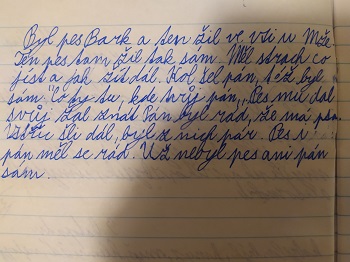 Byl pes Bark a ten žil ve vsi u Mže.
Ten pes tam žil tak sám. Měl strach co
jíst a jak žít dál. Kol šel pán, též byl
sám. "Co by tu, kde tvůj pán". Pes mu dal
svůj žal znát. Pán byl rád, že má psa.
Vstříc šli dál, byl z nich pár. Pes i
pán měl se rád. Už nebyl pes ani pán
sám.